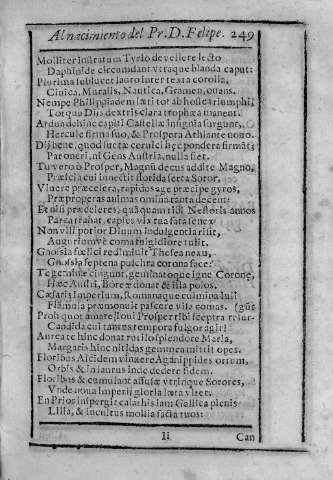 Al nacimiento del Pr. D. Felipe. 249
Molliter lustratum Tyrio de vellere lecto
Daphnide circumdant vtraque blanda caput:
Plurima sublucet lauro inter texta corolla,
Ciuica, Muralis, Nautica, Gramen, ouans.
Nempe Philippiadem læti tot ab hoste triumphi
Tot quo Diis dextris clara trophæa manent.
Ardua dehinc capiti Castellæ insignia surgunt,
Hercule firma suo, & Prospera Athlante nouo.
Dij bene, quod suetæ ceruici hęc pondera firmãt;
Par oneri, ni Gens Austria, nulla siet.
Tu vero ò Prosper, Magnũ decus addite Magno,
Præscia cui innectit florida serta Soror,
Viuere præcelera, rapidos age præcipe gyros,
Præproperas animas omina tanta decent:
Et nisi præceleres, quàquam tibi Nestoris annos
Parca trahat, capies vix tua fata senex
Non vlli potior Diuum Indulgentia risit,
Augurium vè coma fulgidiore tulit.
Gnosia fœlici redimiuit Thesea nexu,
Gnosia septena pulchra corona face:
Te geminæ cingunt, geminatoque igne Coronę,
Hæc Austri, Boreæ donat & illa polos.
Cæsaris Imperium, Romanaque culmina iuli
Flãmula præmonuit pascere visa comas.
Proh quot amare Ioui Prosper tibi sceptra resur-(gũt
Candida cui tantes tempora fulgor agit!
Aurea te hinc donat rutilo splendore Maria,
Margaris hinc nitidas gemmea mittit opes.
Floribus Alcidem vinxere Aganippides ortum,
Orbis & In laurus inde dedere fidem.
Floribus & cumulant assusæ vtrinque Sorores,
Vnde noua Imperij gloria læta viret.
En Prior inspergit calathis iam Gallica plenis
Lilia, & incultus mollia fascia tuos:
Ii
Can